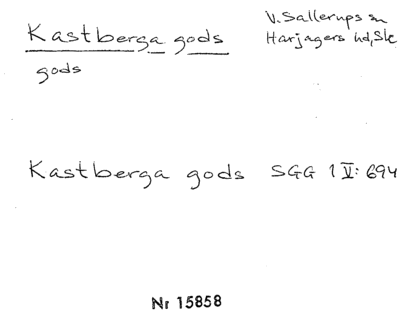 Kastberga gods
V. Sallerups sn
Harjagers hd, Sk
gods
Kastberga gods SGG 1 V: 694
Nr 15858